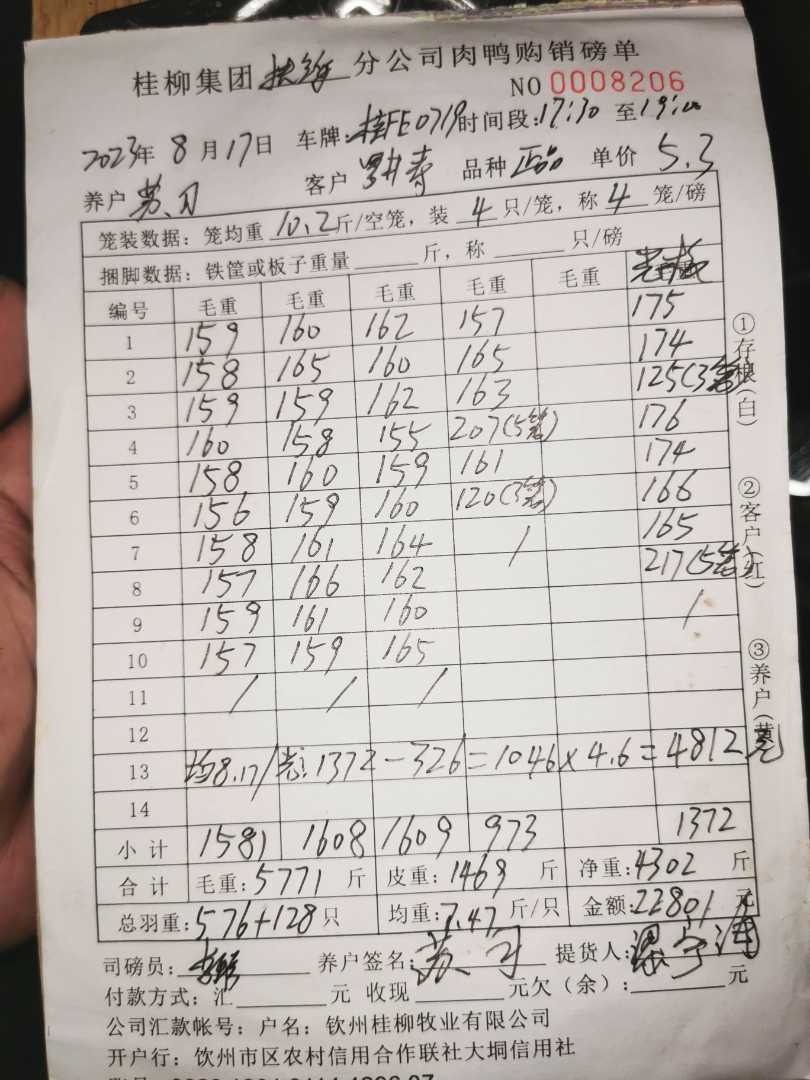 桂柳集团 分公司肉鸭购销磅单
NO 0008206
2023年 8 月 17 日 车牌: 桂FE0719 时间段: 17:30 至 19:00
养户 苏习 客户 品种 正品 单价 5.3
笼装数据: 笼均重 10.2 斤/空笼, 装 4 只/笼, 称 4 笼/磅
捆脚数据: 铁筐或板子重量 斤, 称 只/磅
编号 毛重 毛重 毛重 毛重 毛重
1 159 160 162 157 175
2 158 165 160 165 174
3 159 159 162 163 125(3笼)
4 160 158 155 207(5笼) 176
5 158 160 159 161 174
6 156 159 160 120(3笼) 166
7 158 161 164 / 165
8 157 166 162 217(5笼)
9 159 161 160 /
10 157 159 165
11 / / /
12
13 均8.17/ 1372-326=1046×4.6=4812元
14
小计 1581 1608 1609 973 1372
合计 毛重: 5771 斤 皮重: 1469 斤 净重: 4302 斤
总羽重: 576+128 只 均重: 7.47 斤/只 金额: 22801 元
司磅员: 养户签名: 苏习 提货人:
付款方式: 汇 元 收现 元欠(余): 元
公司汇款帐号: 户名: 钦州桂柳牧业有限公司
开户行: 钦州市区农村信用合作联社大垌信用社
①存根(白)
②客户(红)
③养户(黄)